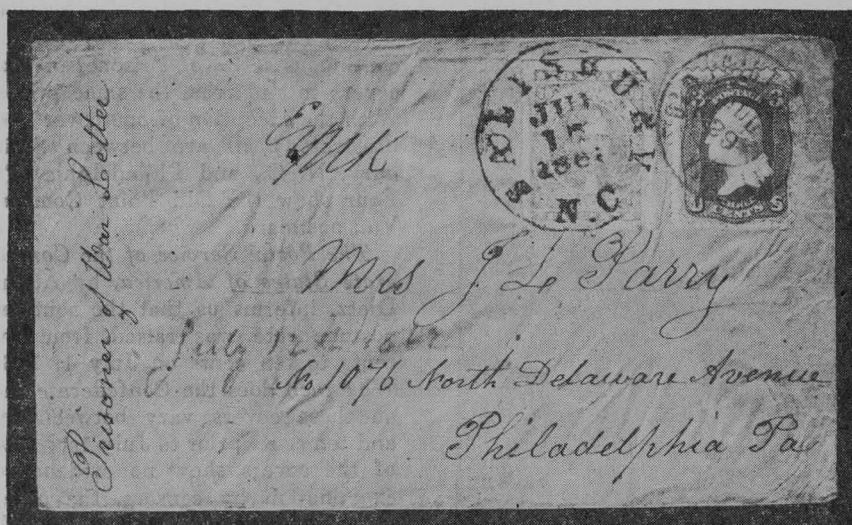 Prisoner of War Letter
EMK
SALISBURY
JUL
N.C
JUL
29
U S
Mrs J L Parry
July
No 1076 North Delaware Avenue
Philadelphia Pa